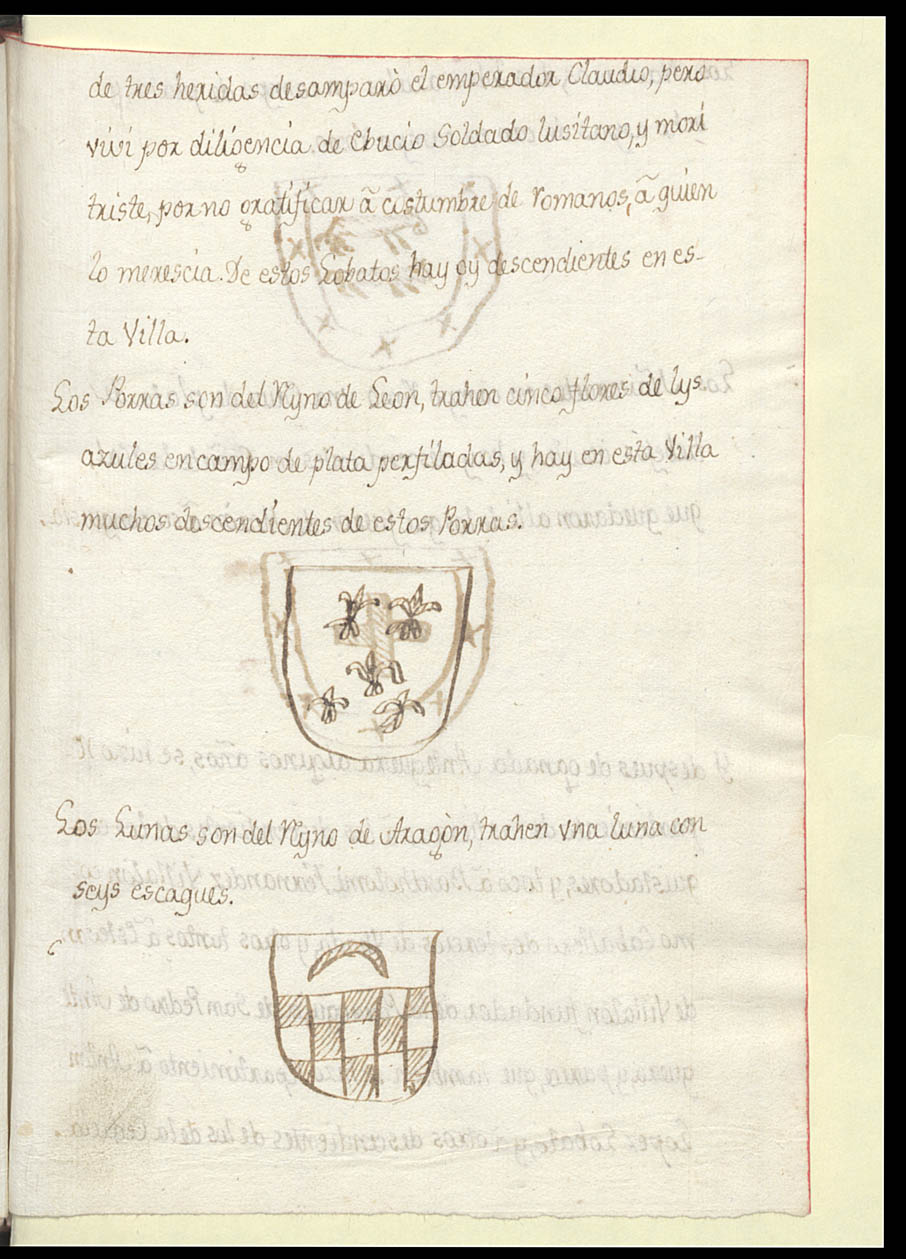 de tres heridas desamparò el emperador Claudio, pero
viví por diligencia de Ebucio Soldado lusitano, y morí
triste, por no gratificar ã costumbre de romanos, ã guien
lo merescia. De estos Lobatos hay oy descendientes en es-
ta Villa.
Los Porras son del Ryno de Leon, trahen cinco flores de lys
azules en campo de plata perfiladas, y hay en esta Villa
muchos descendientes de estos Porras.
Los Lunas son del Ryno de Aragòn, trahen vna luna con
seys escagues.